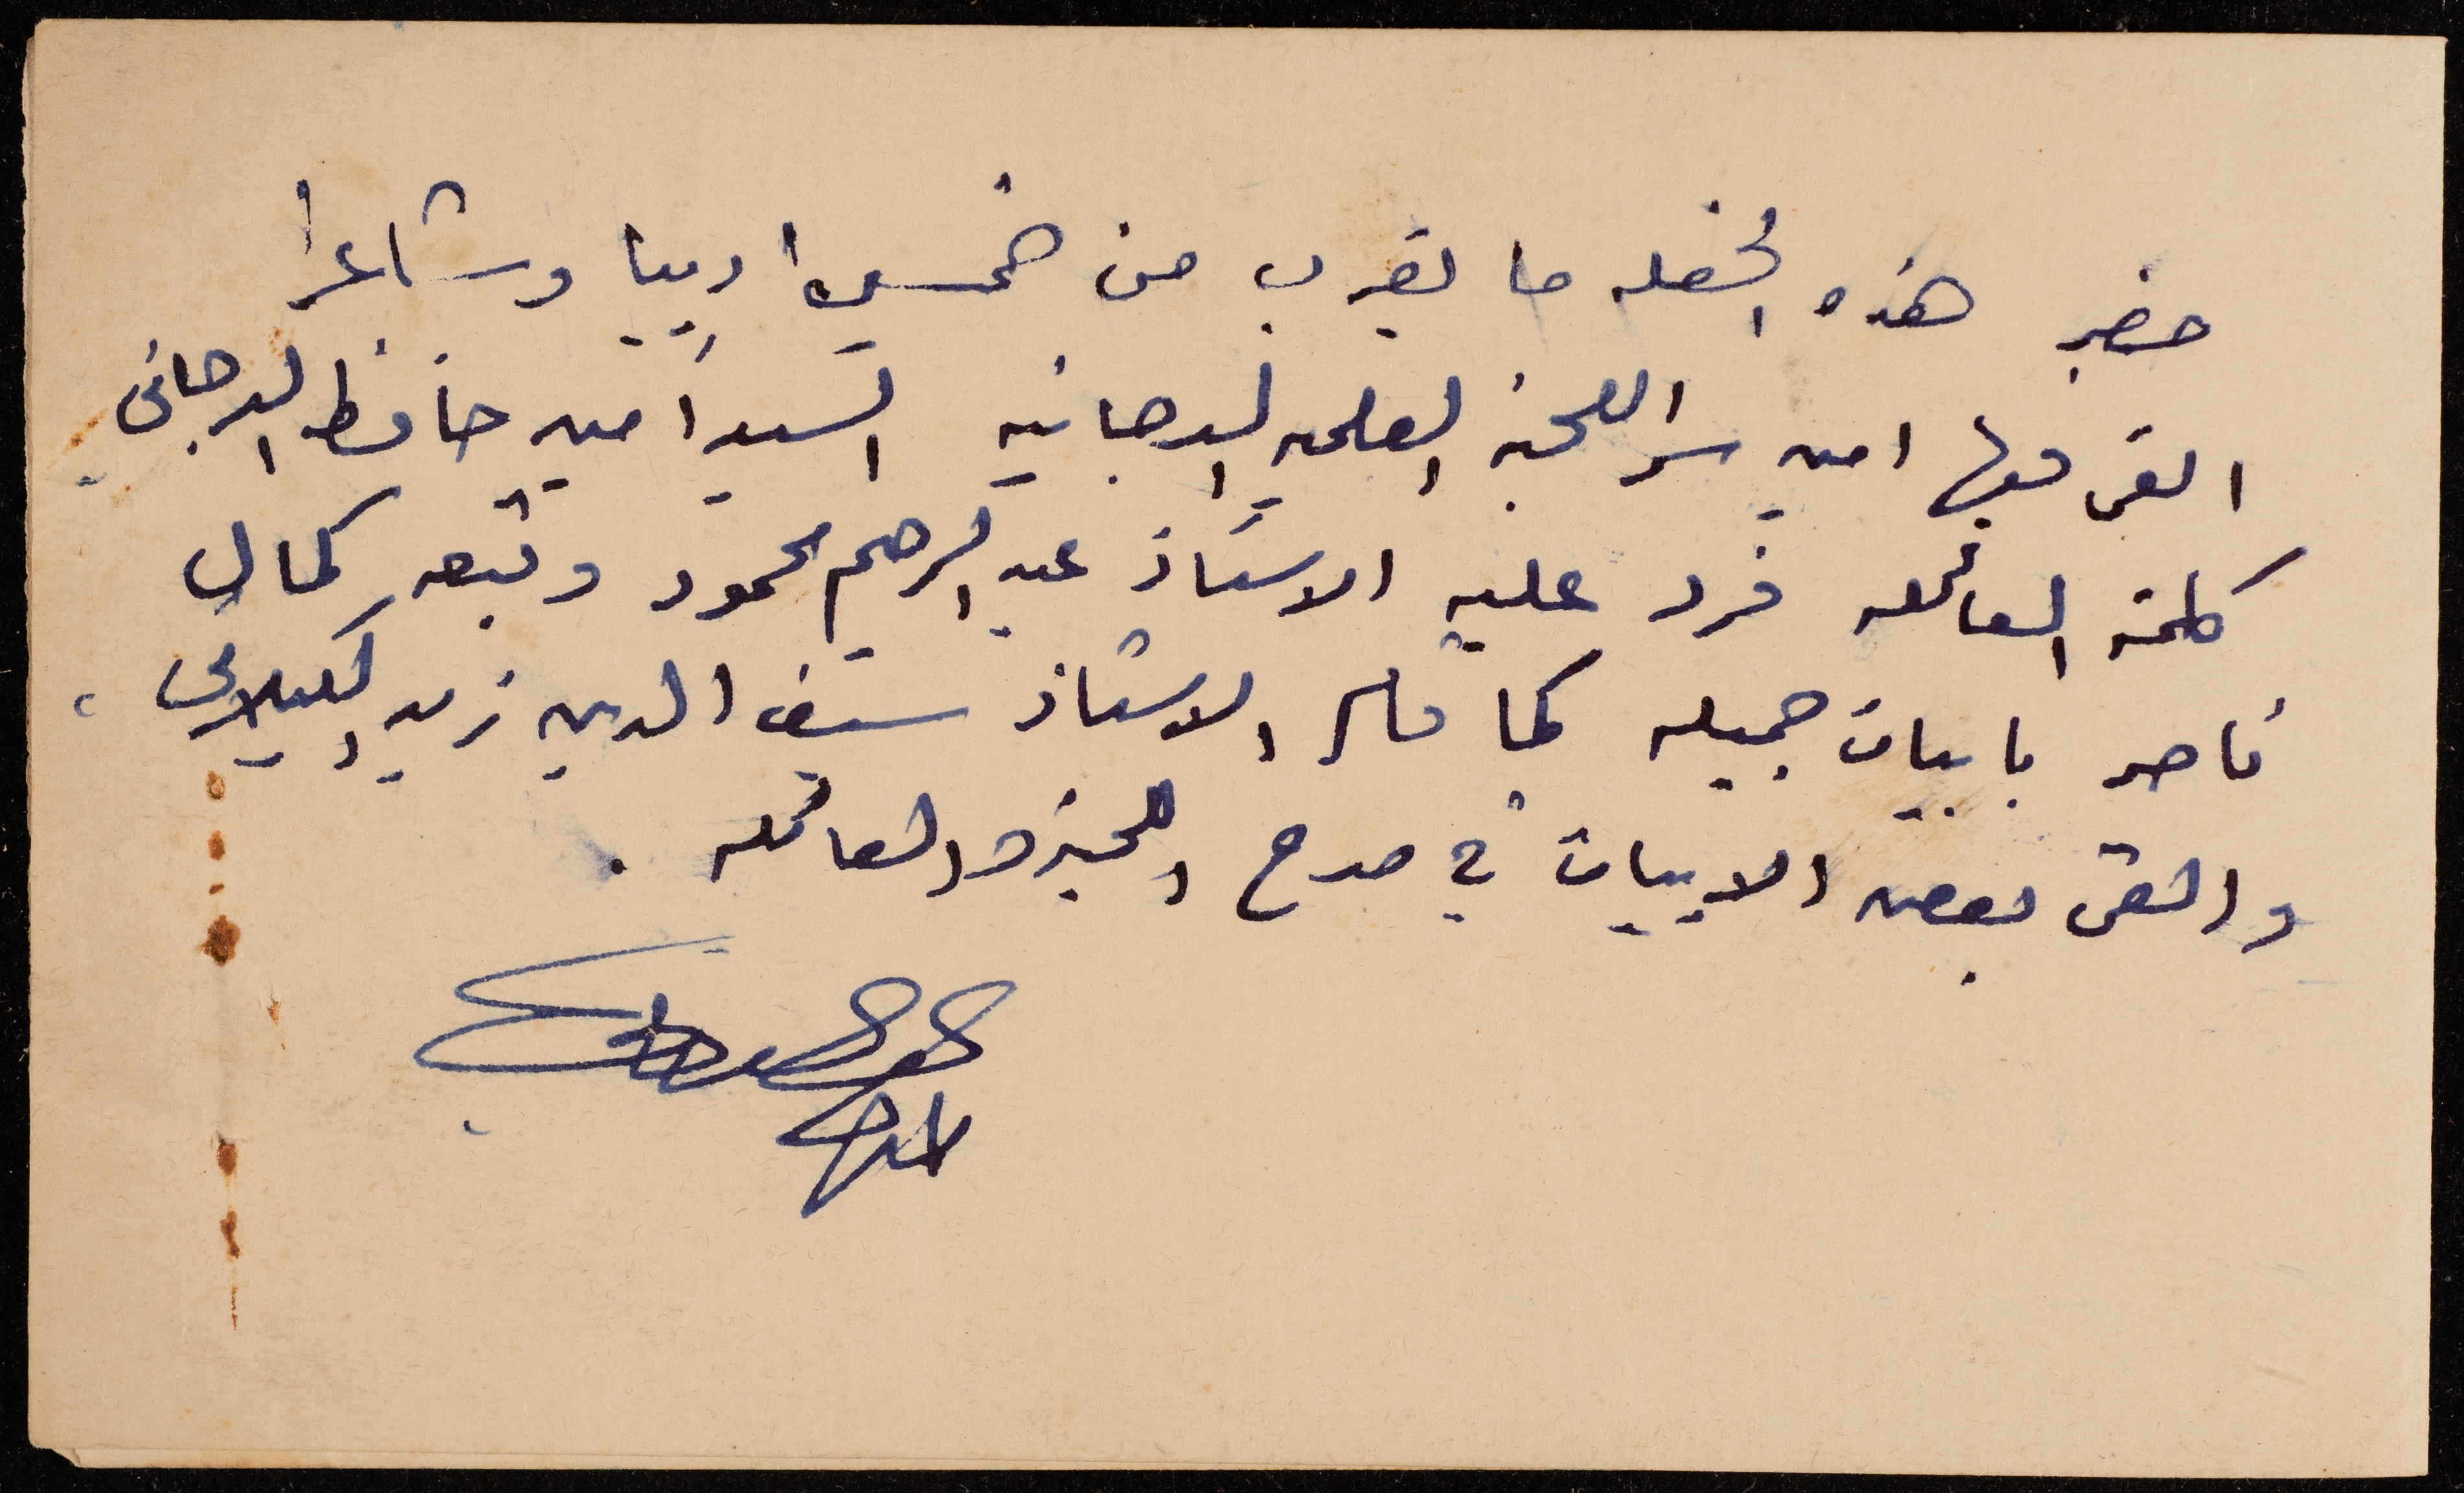 حضر هذه الحفله ما يقرب من خمسين اديبا وشاعرا
القى فيها امين سر اللجنة العلميه الدجانيه السيد امين حافظ الدجاني
كلمة العائله فرد عليه الاستاذ عبد الرحيم محمود وتبعه كمال
ناصر بابيات جميله كما قام الاستاذ سيف الدين زيد الكيلاني،
والقى بعض الابيات في مدح اللجنة والعائله .